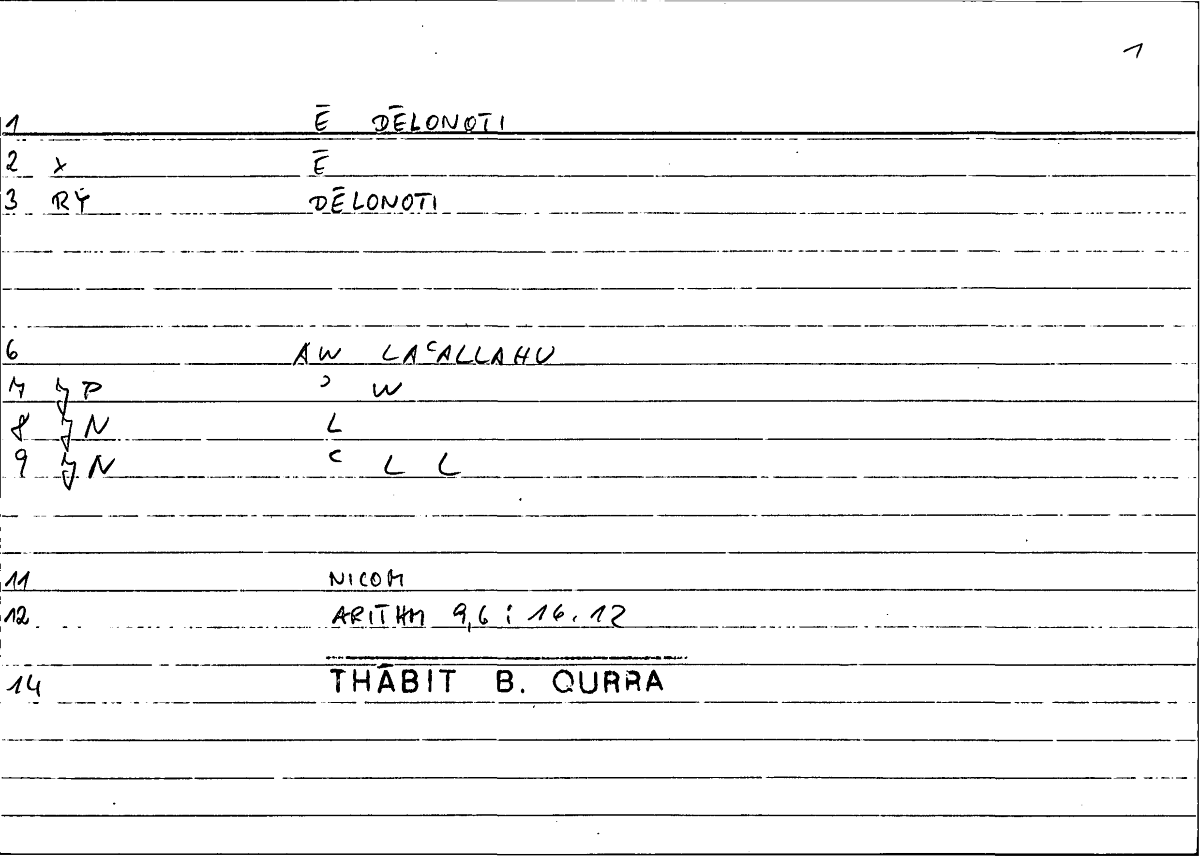 1
1 Ē DĒLONOTI
2 X Ē
3 RY DĒLONOTI
6 AW LAᶜALLAHU
7 P ʾ W
8 N L
9 N ᶜ L L
11 NICOM
12 ARITHM 9,6 : 16.12
14 THĀBIT B. QURRA